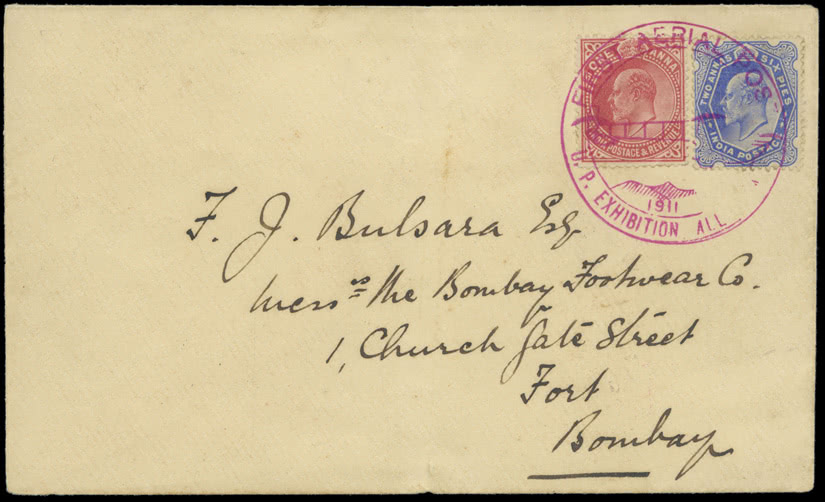 ONE ANNA
INDIA POSTAGE & REVENUE
TWO ANNAS SIX PIES
INDIA POSTAGE
FIRST AERIAL POST
1911
U. P. EXHIBITION ALL
F. J. Bulsara Esq
Messrs The Bombay Footwear Co.
1, Church Gate Street
Fort
Bombay